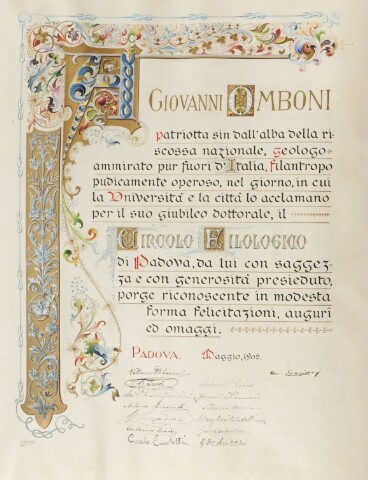 A GIOVANNI OMBONI
patriotta sin dall'alba della ri-
scossa nazionale, geologo
ammirato pur fuori d'Italia, filantropo
pudicamente operoso, nel giorno, in cui
la Università e la città lo acclamano
per il suo giubileo dottorale, il
CIRCOLO FILOLOGICO
di Padova, da lui con saggez-
za e con generosità presieduto,
porge riconoscente in modesta
forma felicitazioni, auguri
ed omaggi.
PADOVA. Maggio, 1902.